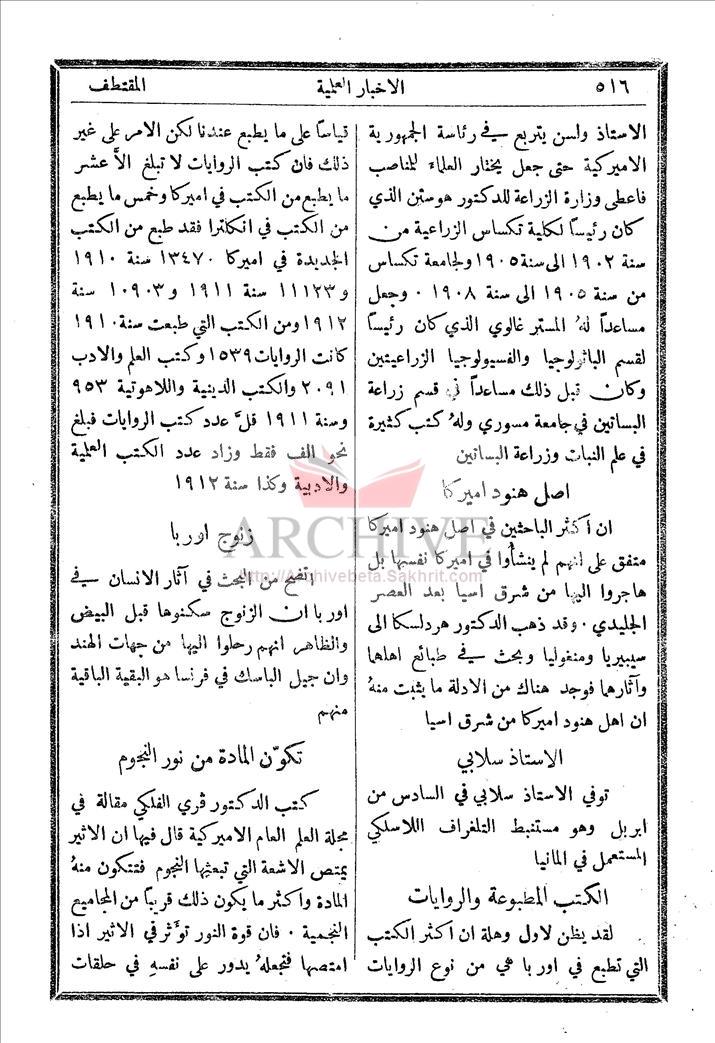 ٥١٦
الاخبار العلمية
المقتطف
الاستاذ ولسن يتربع في رئاسة الجمهورية
الاميركية حتى جعل يختار العلماء للمناصب
فاعطى وزارة الزراعة للدكتور هوستن الذي
كان رئيسًا لكلية تكساس الزراعية من
سنة ١٩٠٢ الى سنة ١٩٠٥ ولجامعة تكساس
من سنة ١٩٠٥ الى سنة ١٩٠٨ . وجعل
مساعدًا لهُ المستر غالوي الذي كان رئيسًا
لقسم الباثولوجيا والفسيولوجيا الزراعيتين
وكان قبل ذلك مساعدًا في قسم زراعة
البساتين في جامعة مسوري ولهُ كتب كثيرة
في علم النبات وزراعة البساتين
اصل هنود اميركا
ان اكثر الباحثين في اصل هنود اميركا
متفق على انهم لم ينشأُوا في اميركا نفسها بل
هاجروا اليها من شرق اسيا بعد العصر
الجليدي . وقد ذهب الدكتور هردلسكا الى
سيبيريا ومنغوليا وبحث في طبائع اهلها
وآثارهما فوجد هناك من الادلة ما يثبت منهُ
ان اهل هنود اميركا من شرق اسيا
الاستاذ سلابي
توفي الاستاذ سلابي في السادس من
ابريل وهو مستنبط التلغراف اللاسلكي
المستعمل في المانيا
الكتب المطبوعة والروايات
لقد يظن لاول وهلة ان اكثر الكتب
التي تطبع في اوربا هي من نوع الروايات
قياسًا على ما يطبع عندنا لكن الامر على غير
ذلك فان كتب الروايات لا تبلغ الأَّ عشر
ما يطبع من الكتب في اميركا وخمس ما يطبع
من الكتب في انكلترا فقد طبع من الكتب
الجديدة في اميركا ١٣٤٧٠ سنة ١٩١٠
و ١١١٢٣ سنة ١٩١١ و ١٠٩٠٣ سنة
١٩١٢ ومن الكتب التي طبعت سنة ١٩١٠
كانت الروايات ١٥٣٩ وكتب العلم والادب
٢٠٩١ والكتب الدينية واللاهوتية ٩٥٣
وسنة ١٩١١ قلَّ عدد كتب الروايات فبلغ
نحو الف فقط وزاد عدد الكتب العلمية
والادبية وكذا سنة ١٩١٢
زنوج اوربا
اتضح من البحث في آثار الانسان في
اوربا ان الزنوج سكنوها قبل البيض
والظاهر انهم رحلوا اليها من جهات الهند
وان جيل الباسك في فرنسا هو البقية الباقية
منهم
تكوّن المادة من نور النجوم
كتب الدكتور ڤري الفلكي مقالة في
مجلة العلم العام الاميركية قال فيها ان الاثير
يمتص الاشعة التي تبعثها النجوم فتتكون منهُ
المادة واكثر ما يكون ذلك قريبًا من المجاميع
النجمية . فان قوة النور توَّثر في الاثير اذا
امتصها فتجعلهُ يدور على نفسهِ في حلقات
ARCHIVE
http://Archivebeta.Sakhrit.com